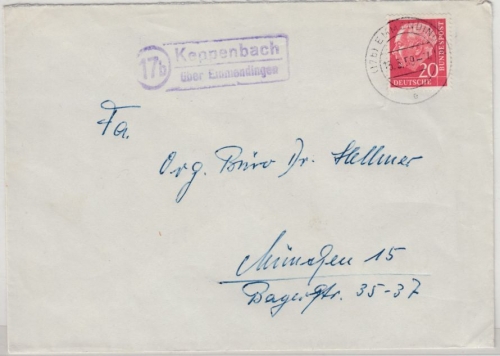 17b
Keppenbach
über Emmendingen
20
DEUTSCHE
BUNDESPOST
Fa.
Org. Büro Dr. Hellmer
München 15
Bayerstr. 35-37